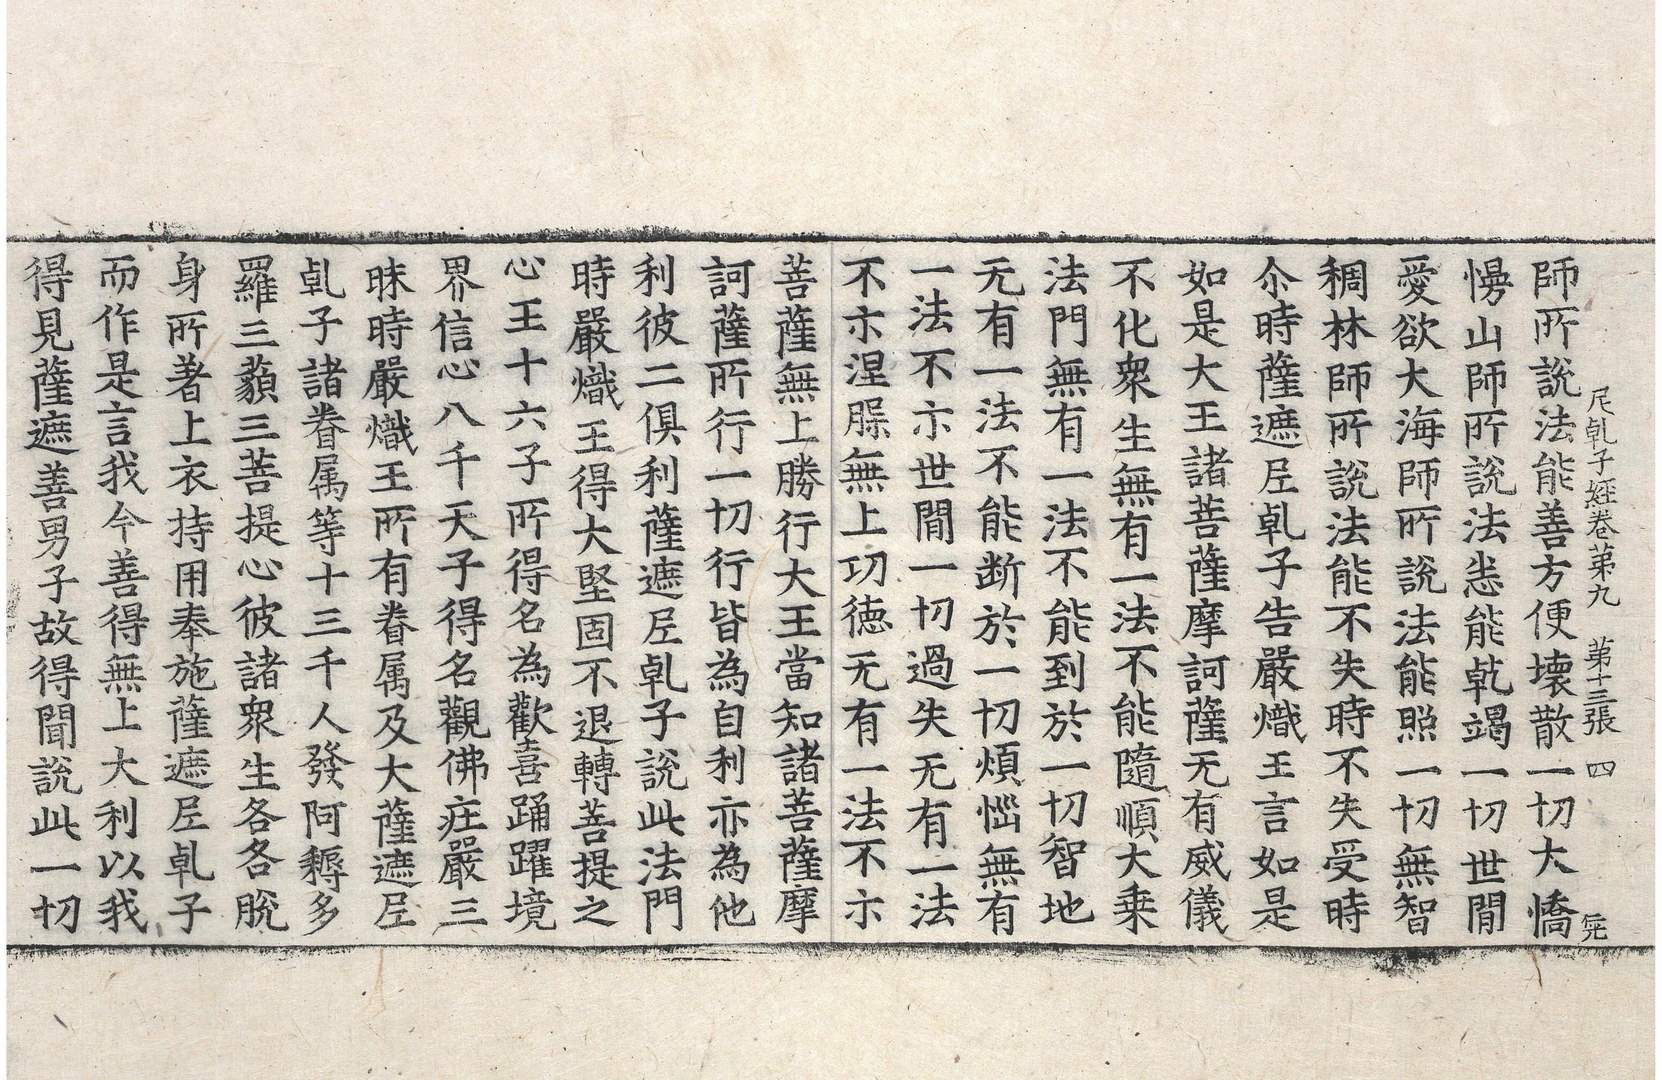 尼乹子經卷第九　第十三張　四
師所說法能善方便壞散一切大憍
慢山師所說法悉能乾竭一切世間
愛欲大海師所說法能照一切無智
稠林師所說法能不失時不失受時
尒時薩遮𡰱乹子告嚴熾王言如是
如是大王諸菩薩摩訶薩无有威儀
不化衆生無有一法不能隨順大乗
法門無有一法不能到於一切智地
无有一法不能断於一切煩惱無有
一法不示世間一切過失无有一法
不示涅槃無上功徳无有一法不示
菩薩無上勝行大王當知諸菩薩摩
訶薩所行一切行皆為自利亦為他
利彼二俱利薩遮𡰱乹子說此法門
時嚴熾王得大堅固不退轉菩提之
心王十六子所得名為歡喜踊躍境
界信心八千天子得名觀佛莊嚴三
昧時嚴熾王所有眷属及大薩遮𡰱
乹子諸眷属等十三千人發阿耨多
羅三藐三菩提心彼諸衆生各各脫
身所著上衣持用奉施薩遮𡰱乹子
而作是言我今善得無上大利以我
得見薩遮善男子故得聞說此一切